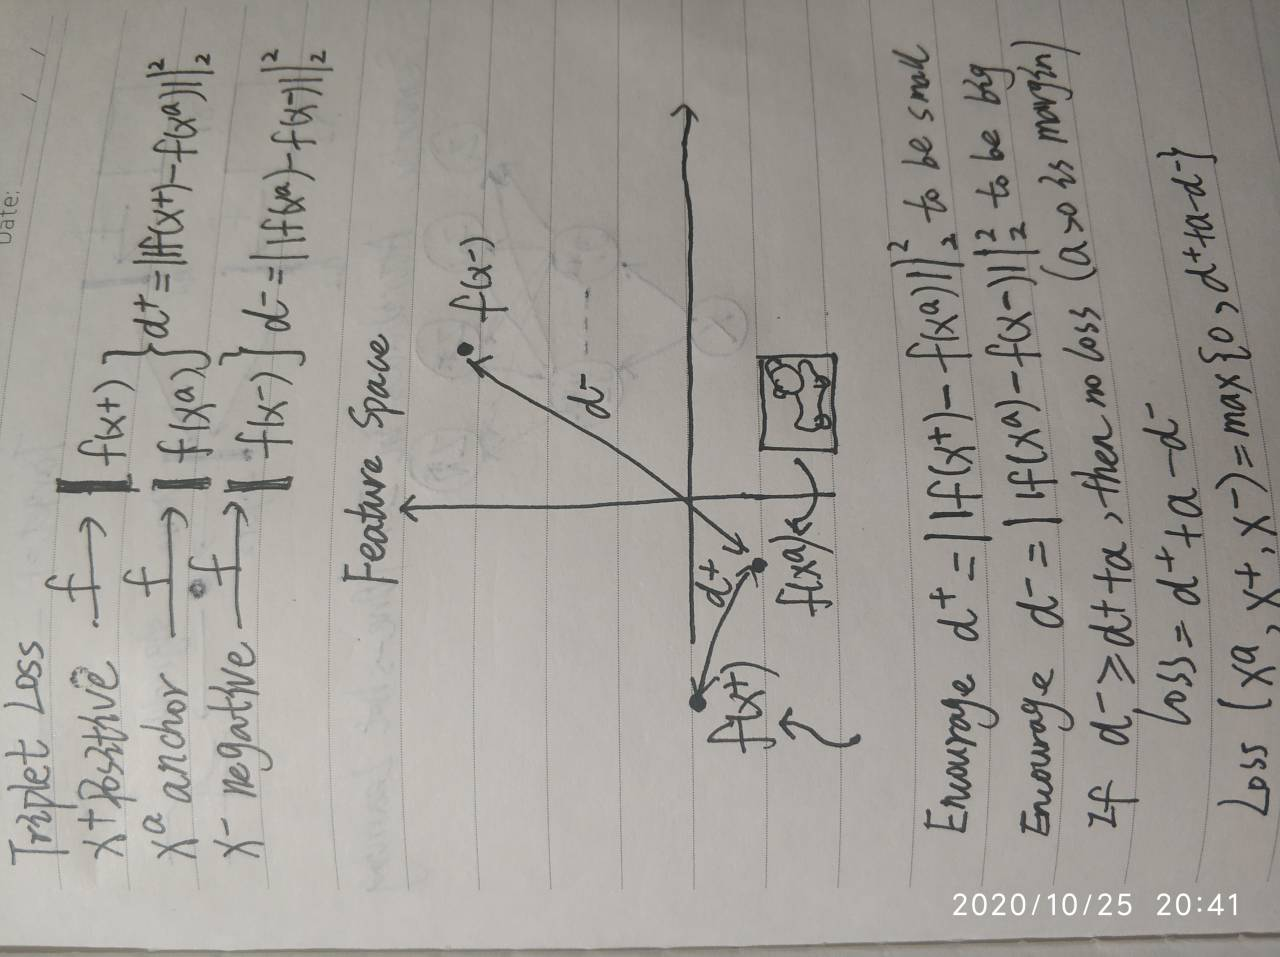 Date: / /
Triplet Loss
x+ Positive f→ f(x+) } d+ = ||f(x+) - f(xa)||²₂
xa anchor f→ f(xa)
x- negative f→ f(x-) ] d- = ||f(xa) - f(x-)||²₂
Feature Space
f(x-)
d-
d+
f(xa)
f(x+)
Encourage d+ = ||f(x+) - f(xa)||²₂ to be small
Encourage d- = ||f(xa) - f(x-)||²₂ to be big
If d- ≥ d+ + a, then no loss (a>0 is margin)
Loss = d+ + a - d-
Loss (xa, x+, x-) = max{0, d+ + a - d-}
2020/10/25 20:41